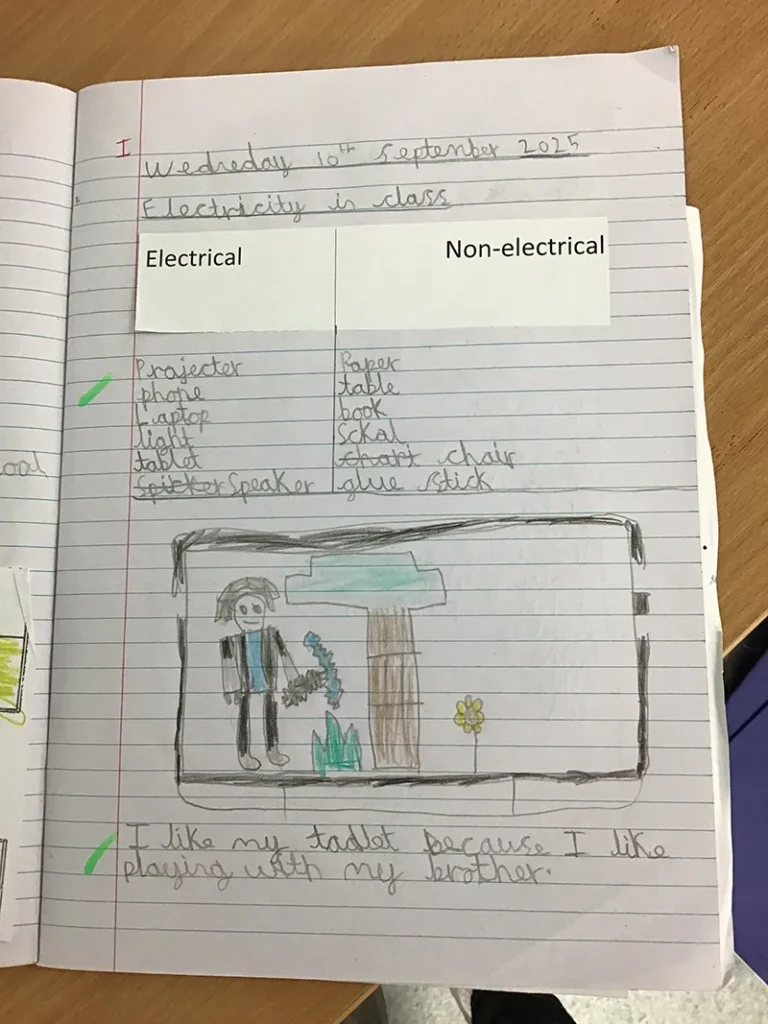 I
Wedneday 10th September 2025
Electricity in class
Electrical Non-electrical
Projecter Paper
phone table
Laptop book
light Sckal
tablet chart chair
Spicker Speaker glue stick
I like my tadlet because I like
playing with my brother.
oal